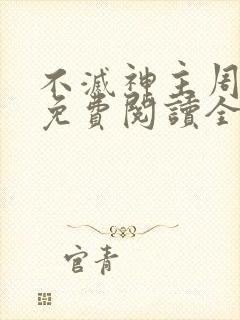 不滅神主周
免費閱讀全
官青